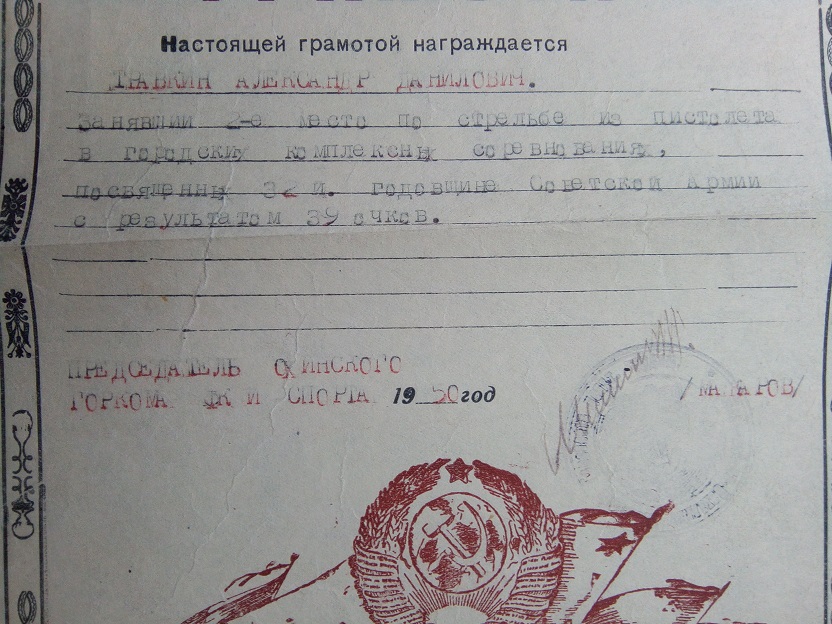 Настоящей грамотой награждается
ТРАВКИН АЛЕКСАНДР ДАНИЛОВИЧ.
Занявший 2-е место по стрельбе из пистолета
в городских комплексных соревнованиях,
посвященных 32 й. годовщине Советской Армии
с результатом 39 очков.
ПРЕДСЕДАТЕЛЬ ОХИНСКОГО
ГОРКОМА ФК И СПОРТА 1950 год
/МАКАРОВ/